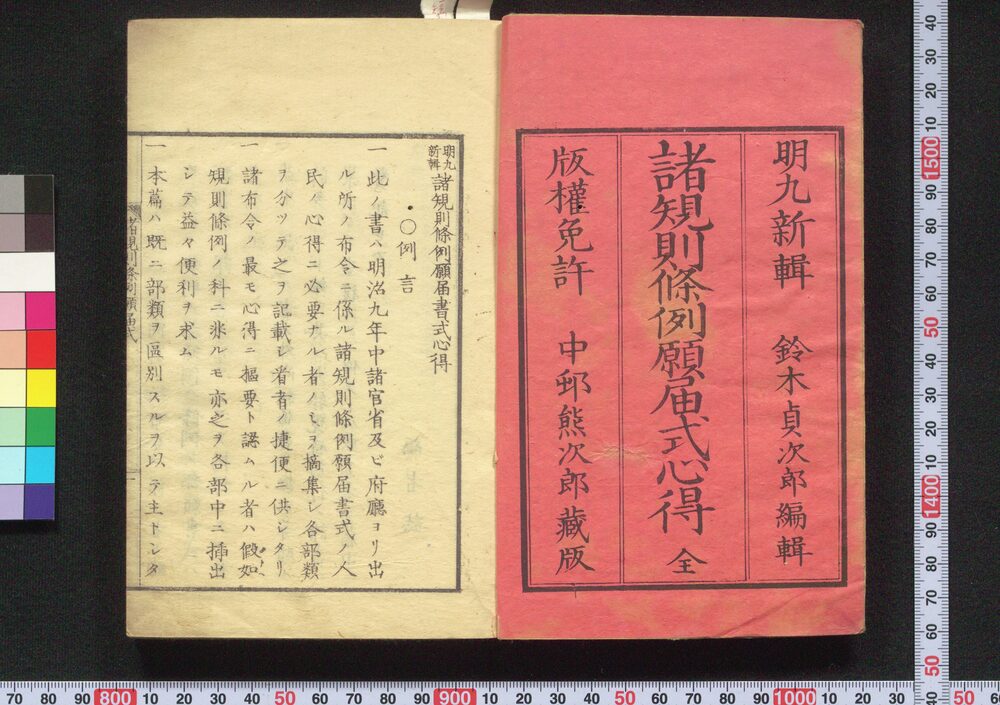 明九新輯 鈴木貞次郎編輯
諸規則條例願届式心得 全
版權免許 中邨熊次郎藏版
明九新輯 諸規則條例願届書式心得
○例言
一 此ノ書ハ明治九年中諸官省及ビ府廳ヨリ出
ル所ノ布令ニ係ル諸規則條例願届書式ノ人
民ノ心得ニ必要ナル者ノミヲ摘集シ各部類
ヲ分ツテ之ヲ記載シ看者ノ捷便ニ供シタリ
一 諸布令ノ最モ心得ニ樞要ト認ムル者ハ假如
規則條例ノ科ニ非ルモ亦之ヲ各部中ニ挿出
シテ益々便利ヲ求ム
一 本篇ハ既ニ部類ヲ區別スルヲ以テ主トシタ
諸規則條例願届式
70 80 90 800 10 20 30 40 50 60 70 80 90 900 10 20 30 40 50 60 70 80 90 1000 10 20 30 40 50
40 30 20 10 1500 90 80 70 60 50 40 30 20 10 1400 90 80 70 60 50 40